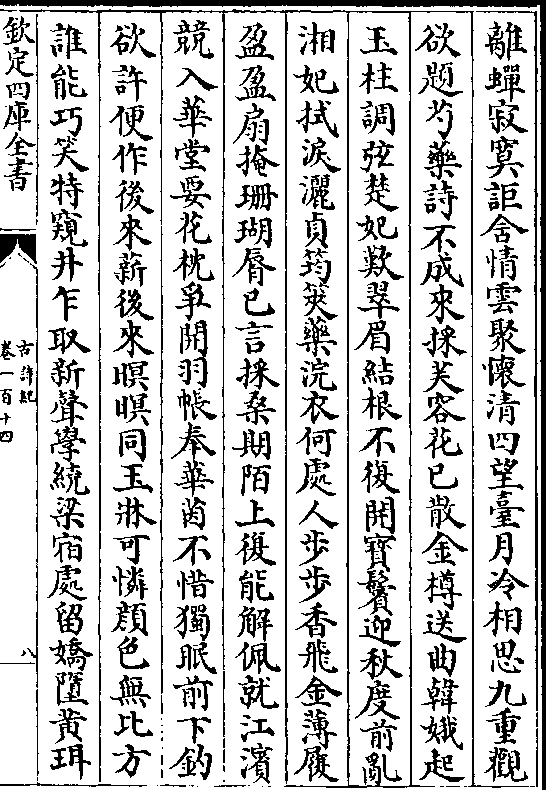 離蟬寂寞詎含情雲聚懷清四望臺月冷相思九重觀
欲題芍藥詩不成來採芙容花已散金樽送曲韓娥起
玉柱調弦楚妃歎翠眉結根不復開寳鬢迎秋度前亂
湘妃拭淚灑貞筠筴藥浣衣何處人步步香飛金薄履
盈盈扇掩珊瑚脣已言採桑期陌上復能解佩就江濱
競入華堂要花枕爭開羽帳奉華茵不惜獨眠前下釣
欲許便作後來薪後來暝暝同玉牀可憐顔色無比方
誰能巧笑特窺井乍取新聲學繞梁宿處留嬌墮黄珥
欽定四庫全書
古詩紀
卷一百十四
八